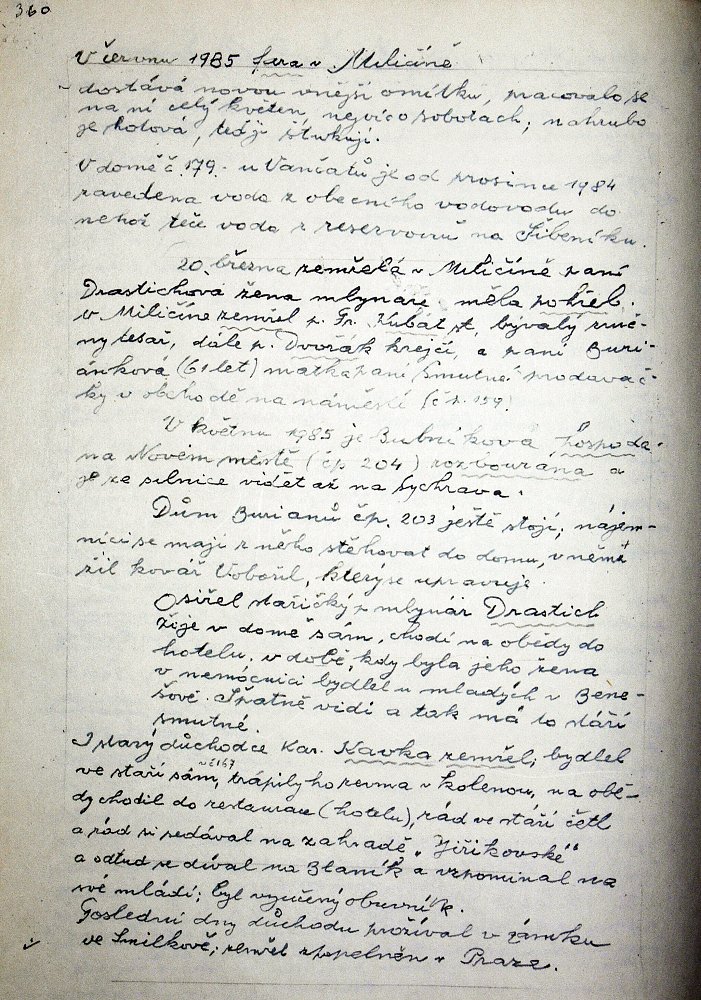 360
V červnu 1985 fara v Miličíně
dostává novou vnější omítku, pracovalo se
na ní celý květen, nejvíc o sobotách; nahrubo
je hotová, teď ji štukují.
V domě č. 179. u Vančatů je od prosince 1984
zavedena voda z obecního vodovodu do
nehož teče voda z reservoirů na Šibeníku.
20. března zemřela v Miličíně paní
Drastichová žena mlynáře, měla pohřeb.
v Miličíně zemřel p. Fr. Kubát st, bývalý ruč-
ný tesař, dále p. Dvořák krejčí, a paní Buri-
ánková (61 let) matka paní Smutné prodavač-
ky v obchodě na náměstí (č p. 159)
V květnu 1985 je Bubníková hospoda
na Novém městě (čp 204) rozbourána a
je ze silnice vidět až na Sychrava.
Dům Burianů čp. 203 ještě stojí; nájem-
níci se mají z něho stěhovat do domu, v němž
žil kovář Vobořil, který se upravuje.
Osiřel stařičký p mlynář Drastich
žije v domě sám, chodí na obědy do
hotelu, v době, kdy byla jeho žena
v nemocnici bydlel u mladých v Bene-
šově. Špatně vidí a tak má to stáří
smutné.
I starý důchodce Kar. Kavka zemřel; bydlel
v č 167
ve stáří sám, trápily ho revma v kolenou, na obě-
dy chodil do restaurace (hotelu), rád ve stáří četl
a rád si sedával na zahradě „Jiříkovské"
a odtud se díval na Blaník a vzpomínal na
své mládí; byl vyučený obuvník.
Poslední dny důchodu prožíval v zámku
ve Smilkově; zemřel zpopelněn v Praze.